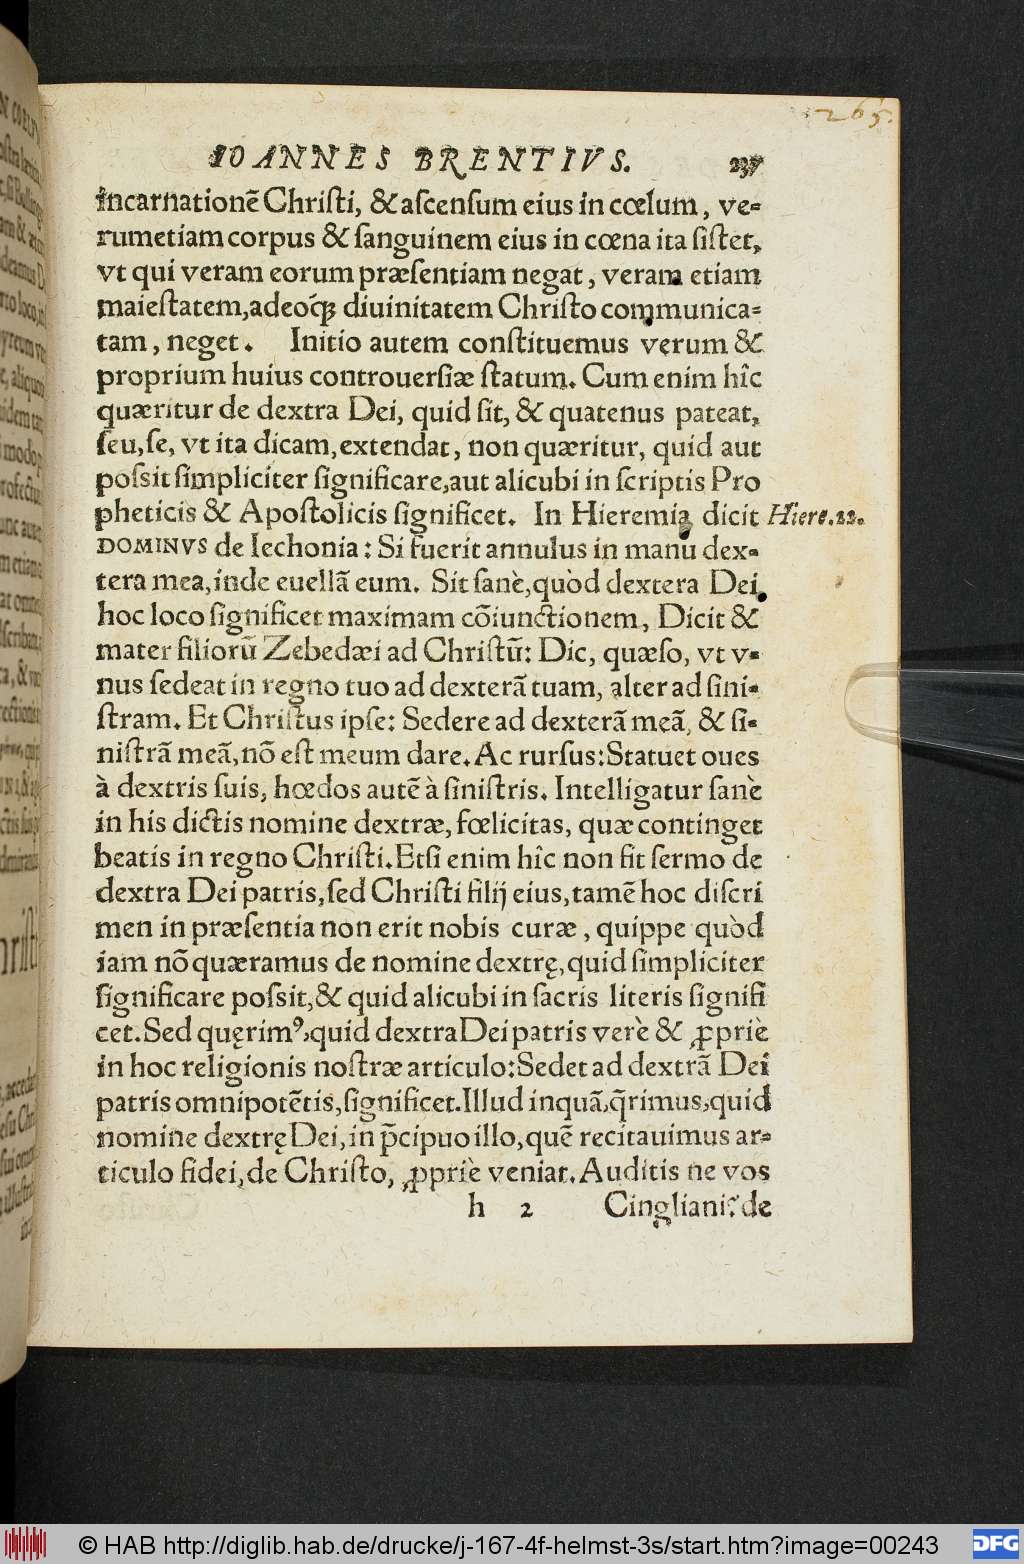 265.
IOANNES BRENTIVS. 237
incarnationē Christi, & ascensum eius in cœlum, ve-
rumetiam corpus & sanguinem eius in cœna ita sistet,
vt qui veram eorum præsentiam negat, veram etiam
maiestatem, adeoq́; diuinitatem Christo communica-
tam, neget. Initio autem constituemus verum &
proprium huius controuersiæ statum. Cum enim hîc
quæritur de dextra Dei, quid sit, & quatenus pateat,
seu, se, vt ita dicam, extendat, non quæritur, quid aut
possit simpliciter significare, aut alicubi in scriptis Pro
pheticis & Apostolicis significet. In Hieremia dicit Hiere.22.
DOMINVS de Iechonia: Si fuerit annulus in manu dex-
tera mea, inde euellā eum. Sit sanè, quòd dextera Dei
hoc loco significet maximam cōiunctionem, Dicit &
mater filiorū Zebedæi ad Christū: Dic, quæso, vt v-
nus sedeat in regno tuo ad dexterā tuam, alter ad sini-
stram. Et Christus ipse: Sedere ad dexterā meā, & si-
nistrā meā, nō est meum dare. Ac rursus: Statuet oues
à dextris suis, hœdos autē à sinistris. Intelligatur sanè
in his dictis nomine dextræ, fœlicitas, quæ continget
beatis in regno Christi. Etsi enim hîc non fit sermo de
dextra Dei patris, sed Christi filij eius, tamē hoc discri
men in præsentia non erit nobis curæ, quippe quòd
iam nō quæramus de nomine dextrę, quid simpliciter
significare possit, & quid alicubi in sacris literis signifi
cet. Sed quęrimꝰ, quid dextra Dei patris verè & ꝓpriè
in hoc religionis nostræ articulo: Sedet ad dextrā Dei
patris omnipotētis, significet. Illud inquā, q̄rimus, quid
nomine dextrę Dei, in p̄cipuo illo, quē recitauimus ar-
ticulo fidei, de Christo, ꝓpriè veniat. Auditis ne vos
h 2 Cingliani? de
© HAB http://diglib.hab.de/drucke/j-167-4f-helmst-3s/start.htm?image=00243
DFG